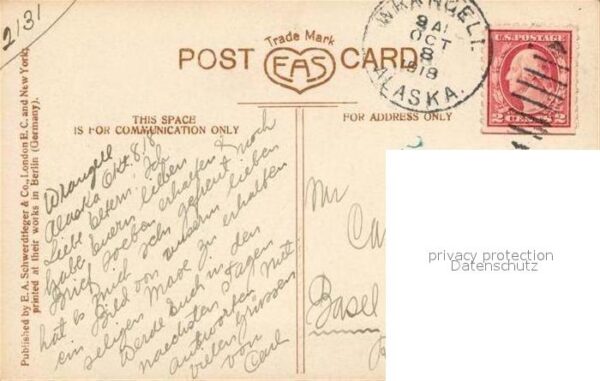 2131
Trade Mark
POST CARD.
EAS
WRANGELL
9 AM
OCT
8
1918
ALASKA.
U.S. POSTAGE
2 CENTS 2
THIS SPACE
IS FOR COMMUNICATION ONLY
FOR ADDRESS ONLY
Published by E. A. Schwerdtfeger & Co., London E. C. and New York,
printed at their works in Berlin (Germany).
Wrangell
Alaska Oct. 8/18
Liebe Eltern. Ich
habe euern lieben
Brief soeben erhalten & noch
hat es mich sehr gefreut
ein Bild von unserm lieben
seligen Mase zu erhalten
Werde Euch in den
naechsten Tagen
antworten. Mit
vielen Grüssen
von
Carl
Mr
Ca
Basel
privacy protection
Datenschutz